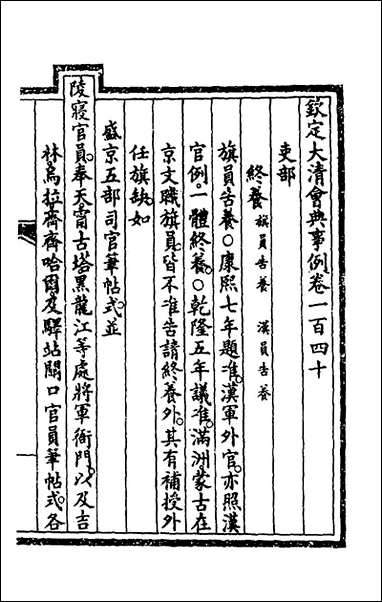 欽定大清會典事例卷一百四十
吏部
終養 旗員告養 漢員告養
旗員告養○康熙七年題准。漢軍外官。亦照漢
官例。一體終養。○乾隆五年議准。滿洲蒙古在
京文職旗員。皆不准告請終養外。其有補授外
任旗缺如
盛京五部司官筆帖式並
陵寢官員。奉天甯古塔黑龍江等處將軍衙門。以及吉
林烏拉齊齊哈爾及驛站關口官員筆帖式。各